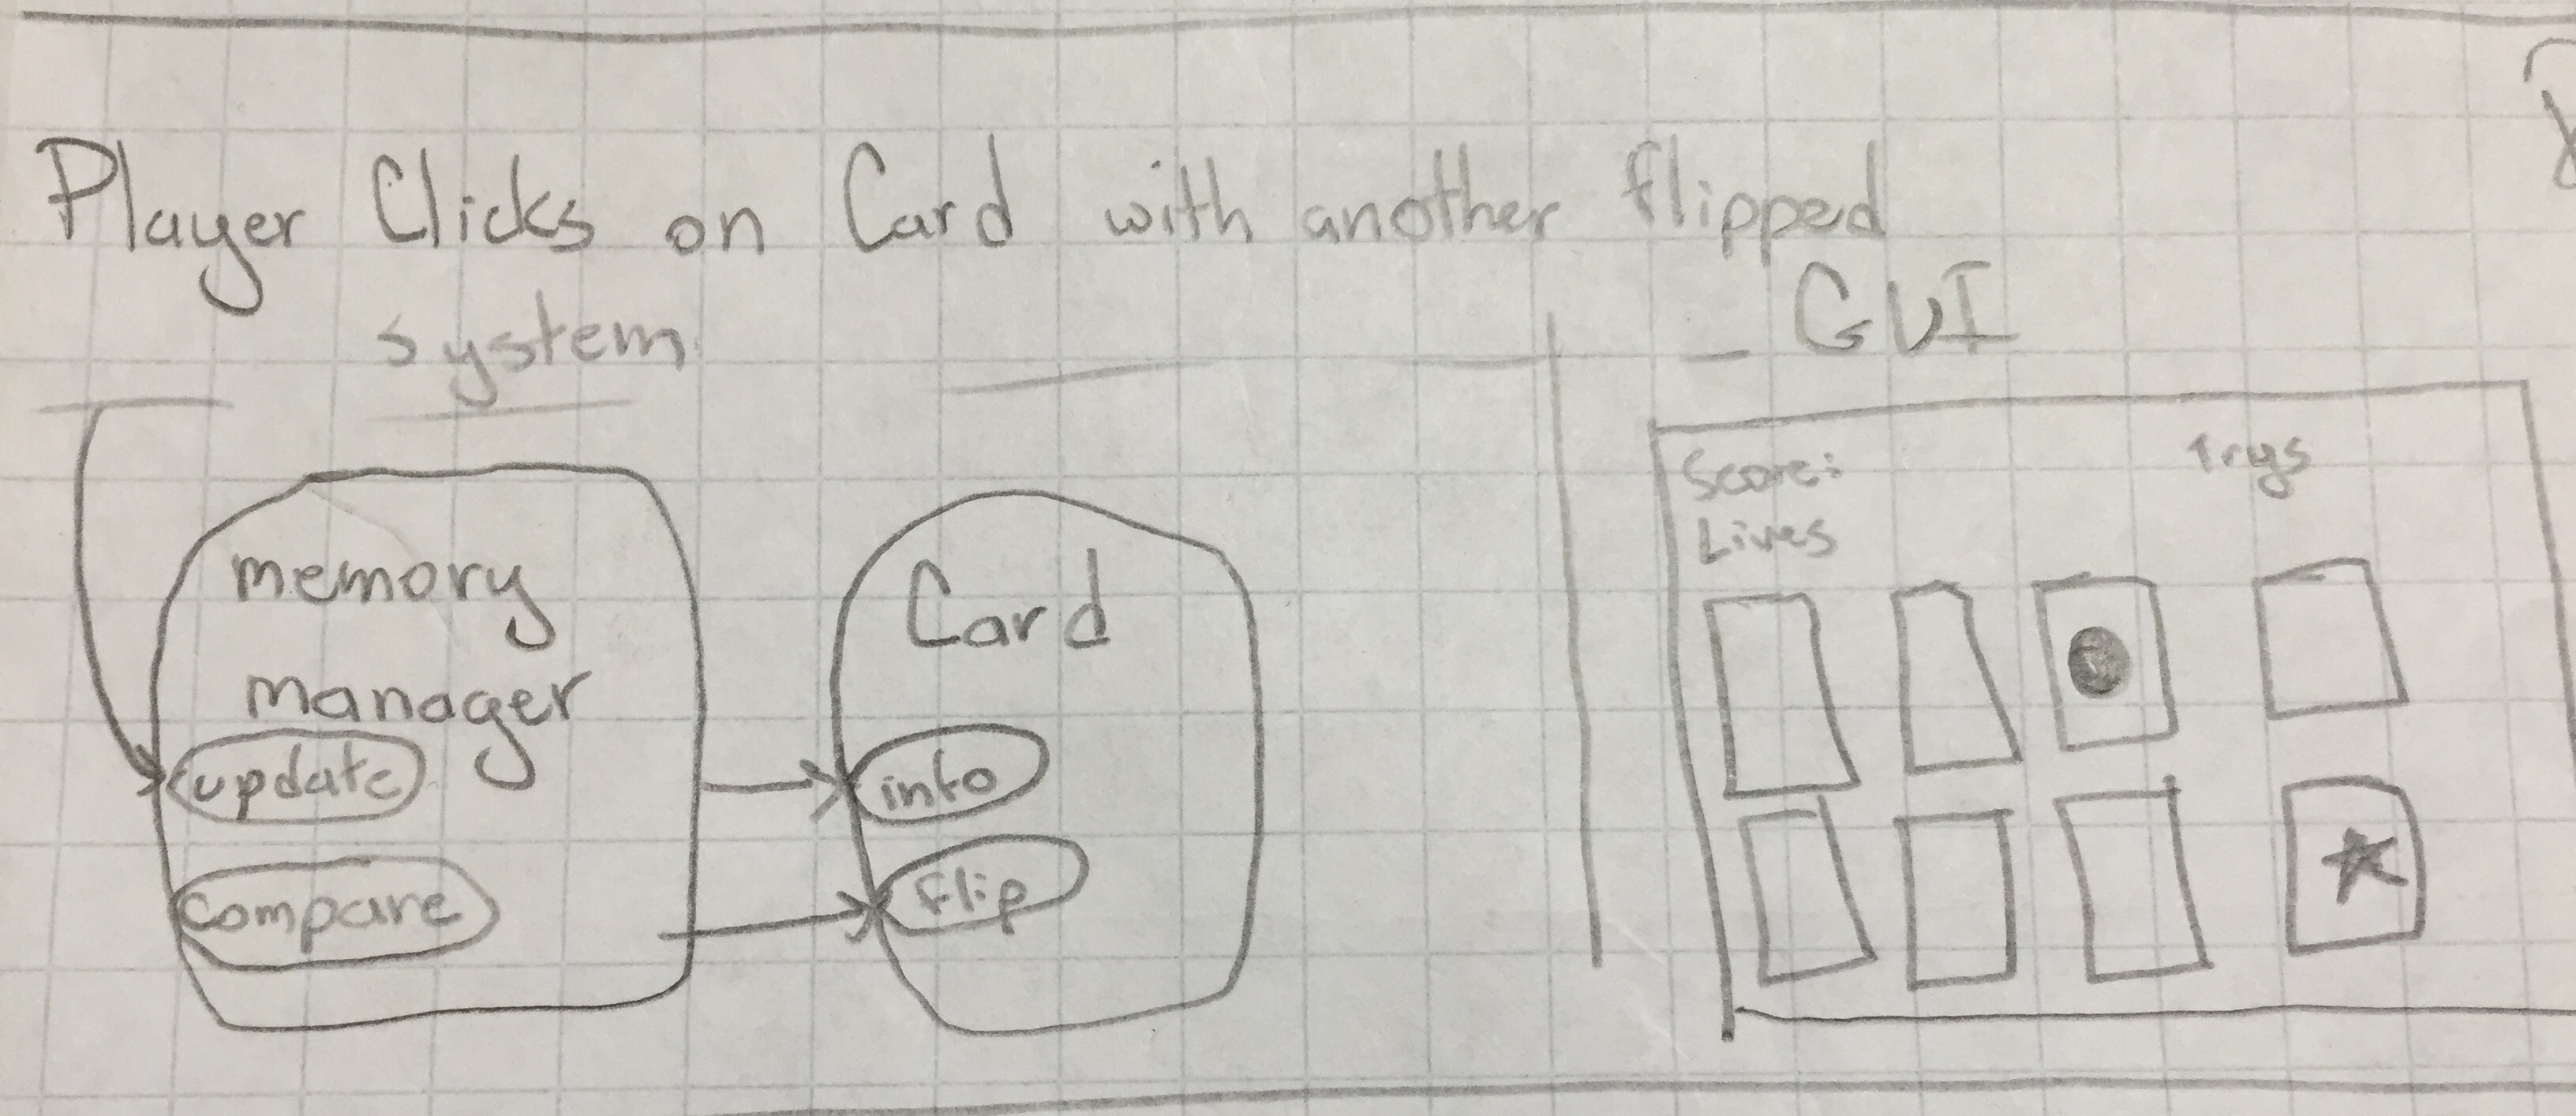 Player Clicks on Card with another flipped
system
GUI
memory
manager
update
compare
Card
info
flip
Score:
Trys
Lives